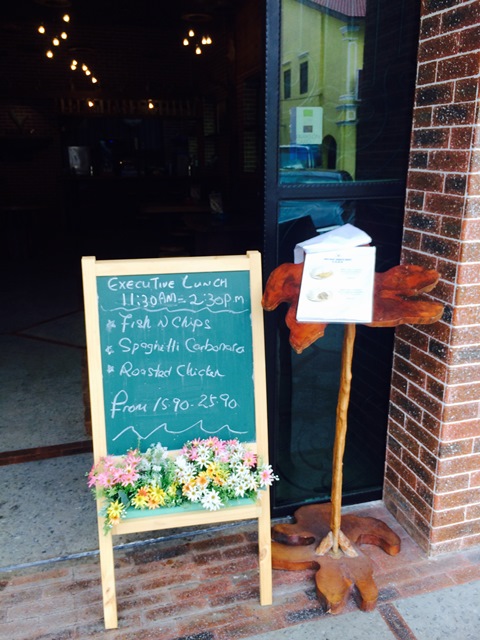 EXECUTIVE LUNCH
11:30AM = 2:30p.m
* Fish N Chips
* Spaghetti Carbonara
* Roasted Chicken
From 1590-2590